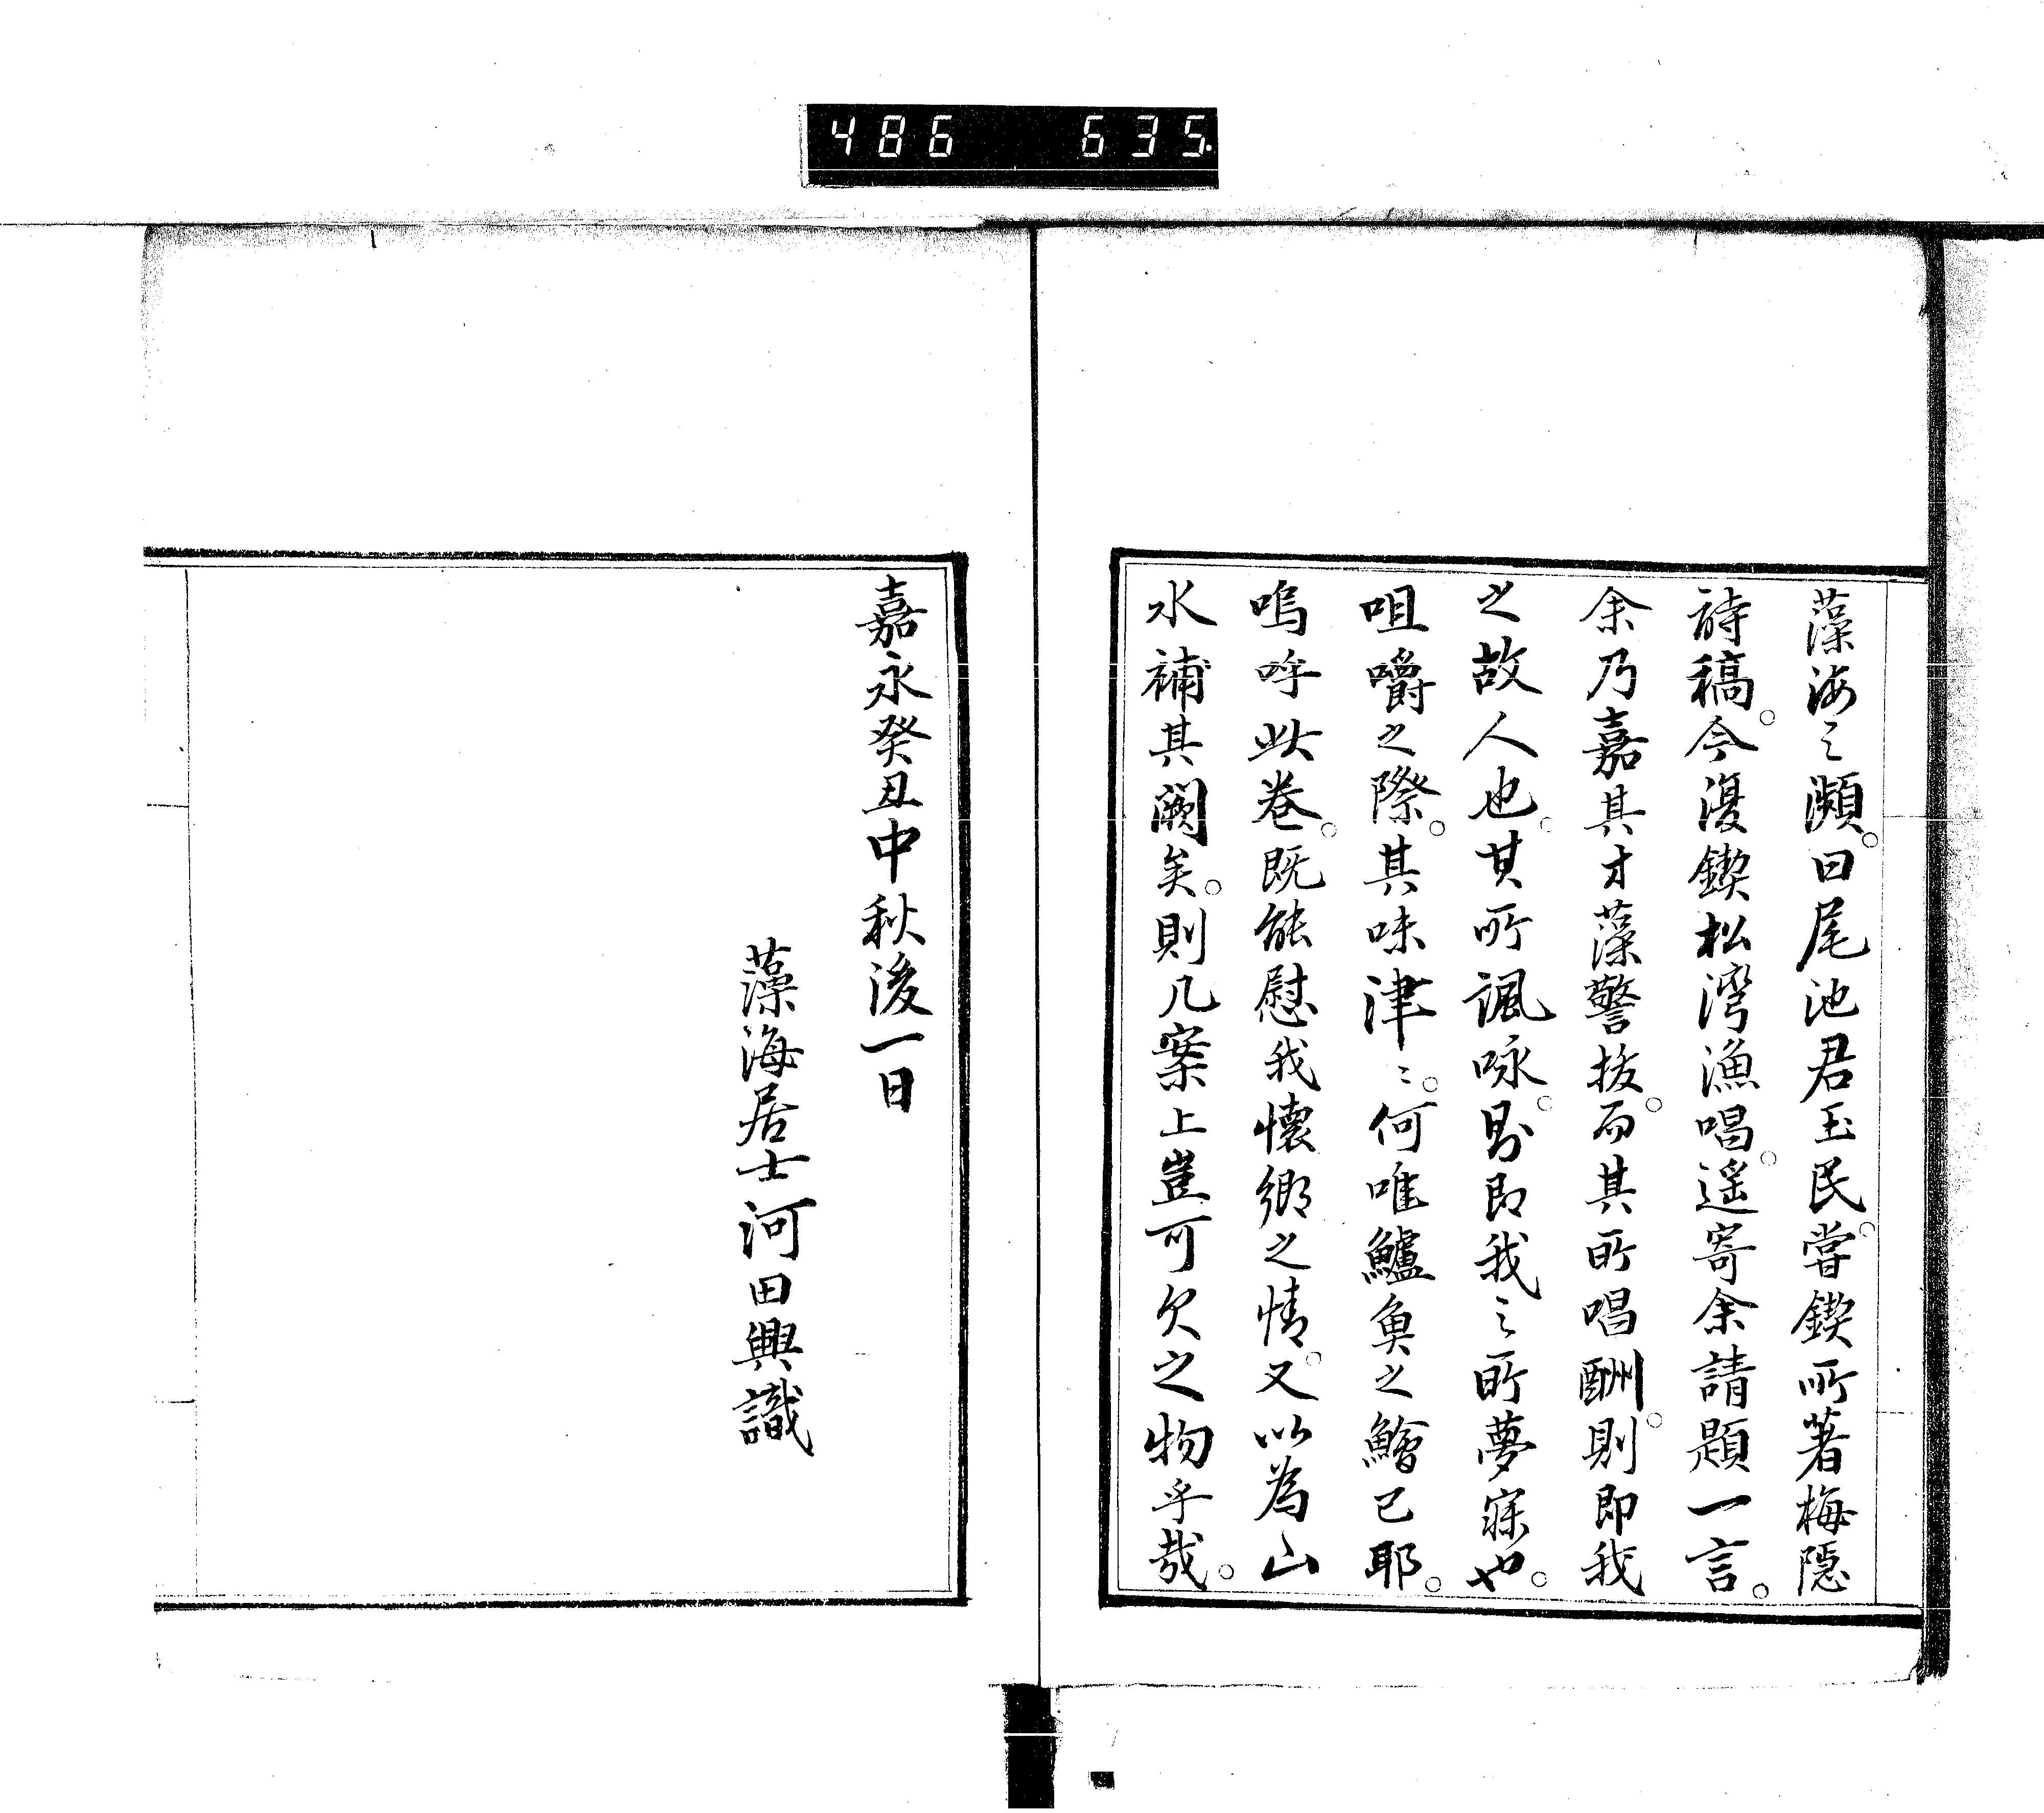 486 635
藻海之瀕。曰尾池君玉民。嘗鍥所著梅隠
詩稿。今復鍥松湾漁唱。遥寄余請題一言。
余乃嘉其才藻警拔。而其所唱酬。則即我
之故人也。其所諷咏。則即我之所夢寐也。
咀嚼之際。其味津〻。何唯鱸魚之鱠已耶。
嗚呼此巻。既能慰我懐郷之情。又以為山
水補其闕矣。則几案上豈可欠之物乎哉。
嘉永癸丑中秋後一日
藻海居士河田興識